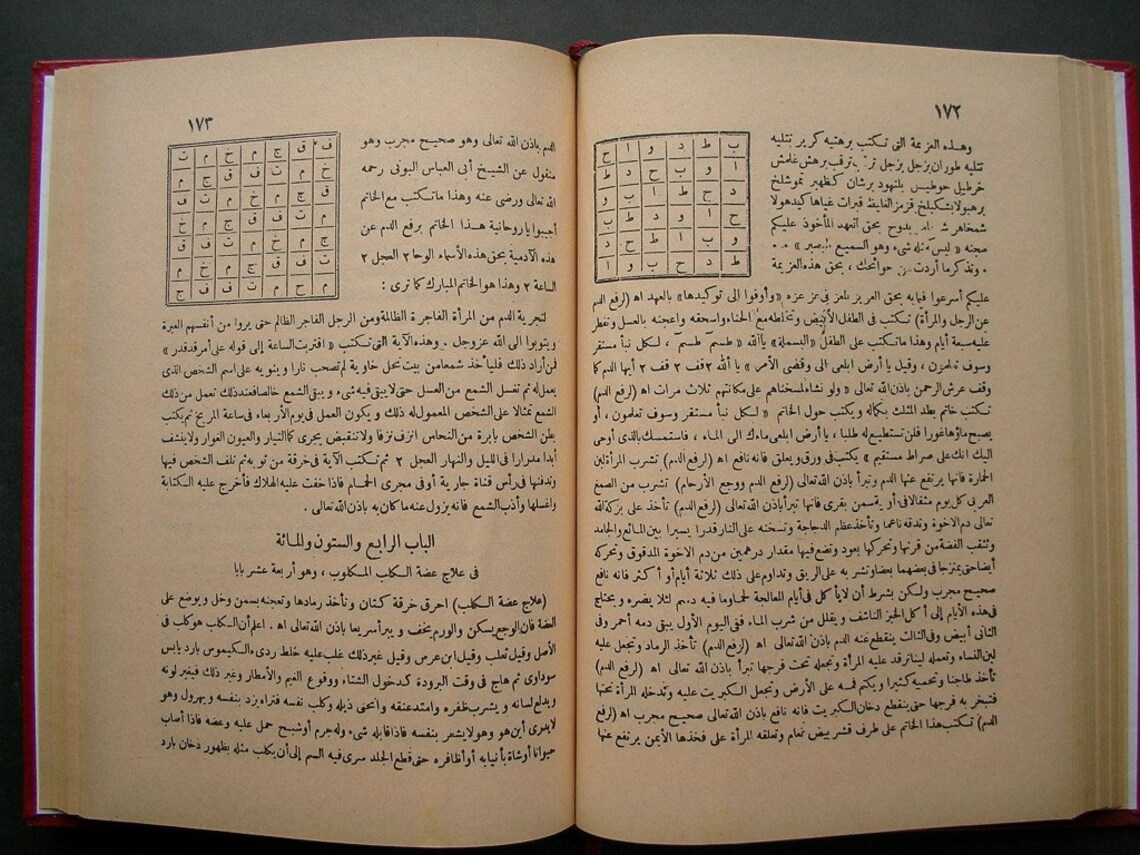 ١٧٢
وهذه العزيمة التى تكتب برهتيه كرير تتليه
تتليه طوران بزجل بزجل ترقب برهش غلمش
خرطيل حوطيس بلنهود برشان كظهير نموشلخ
برهيولا بشكيلخ قزمز انغلليط قبرات غياها كيدهولا
شمخاهر بدوح بحق العهد المأخوذ عليكم
« ليس كمثله شىء وهو السميع البصير »
وتذكر ما أردت من حوائجك ، بحق هذه العزيمة
ب ط د و ا ح
ا و ب ح د ط
د ح ط ا ب و
ح ا و د ط ب
و ب ا ط ح د
ط د ح ب و ا
عليكم أسرعوا فيما به بحق العزيز المعز فى عز عزه «وأوفوا إلى توكيدها» بالعهد اه (لرفع الدم
عن الرجل والمرأة) تكتب فى الطفل الأبيض وتخلطه مع الحناء واسحقه واعجنه بالعسل وتفطر
عليه سبعة أيام وهذا ما تكتب على الطفل «البسملة» يا الله « طسم طسم ، لكل نبأ مستقر
وسوف تعلمون ، وقيل يا أرض ابلعى الى وقضى الأمر » يا الله ٢ قف ٢ قف ٢ أيها الدم كما
وقف عرش الرحمن باذن الله تعالى « ولو نشاء لمسخناهم على مكانتهم ثلاث مرات اه (لرفع الدم)
تكتب خاتم بطد المثلث بكماله ويكتب حول الخاتم « لكل نبأ مستقر وسوف تعلمون ، أو
يصبح ماؤها غورا فلن تستطيع له طلبا ، يا أرض ابلعى ماءك الى الماء ، فاستمسك بالذى أوحى
اليك انك على صراط مستقيم » يكتب فى ورق ويعلق فانه نافع اه (لرفع الدم) تشرب المرأة لبن
الحمارة فانها يرتفع عنها الدم وتبرأ باذن الله تعالى (لرفع الدم ووجع الأرحام) تشرب من الصمغ
العربى كل يوم مثقالا فى أوقية سمن بقرى فانها تبرأ باذن الله تعالى (لرفع الدم) تأخذ على بركة الله
تعالى دم الاخوة وتدقه ناعما وتأخذ عظم الدجاجة وتسخنه على النار قدرا يسيرا بين المائع والجامد
وتثقب الفضة من قرنها وتحركها بعود وتضع فيها مقدار درهمين من دم الاخوة المدقوق وتحركه
أيضا حتى يمتزجا فى بعضهما بعضا وتشربه على الريق وتداوم على ذلك ثلاثة أيام أو أكثر فانه نافع
صحيح مجرب ولكن بشرط أن لا يأكل فى أيام المعالجة لحما وما فيه دسم لئلا يضره ويحتاج
فى هذه الأيام إلى أكل الخبز الناشف ويقلل من شرب الماء ففى اليوم الأول يبقى دمه أحمر وفى
الثانى أبيض وفى الثالث ينقطع عنه الدم باذن الله تعالى اه (لرفع الدم) تأخذ الرماد وتجعل عليه
لبن النساء وتعمله لينا ترقد عليه المرأة وتجعله تحت فرجها تبرأ باذن الله تعالى اه (لرفع الدم)
تأخذ طاجنا وتحميه كثيرا ويكتم فمه على الأرض وتجعل الكبريت عليه وتدخله المرأة تحتها
فتبخر به فرجها حتى ينقطع دخان الكبريت فانه نافع باذن الله تعالى صحيح مجرب اه (لرفع
الدم) تكتب هذا الخاتم على طرف قشر بيض نعام وتعلقه المرأة على فخذها الأيمن يرتفع عنها
١٧٣
الدم باذن الله تعالى وهو صحيح مجرب وهو
منقول عن الشيخ أبى العباس البونى رحمه
الله تعالى ورضى عنه وهذا ما تكتب مع الخاتم
أجيبوا يا روحانية هذا الخاتم برفع الدم عن
هذه الآدمية بحق هذه الأسماء الوحا ٢ العجل ٢
الساعة ٢ وهذا هو الخاتم المبارك كما ترى :
ف ق ج م خ م ت
خ م ت ف ق ج م
ق ج م خ م ت ف
م ت ف ق ج م خ
ج م خ م ت ف ق
ت ف ق ج م خ م
م خ م ت ف ق ج
لتجرية الدم من المرأة الفاجرة الظالمة ومن الرجل الفاجر الظالم حتى يروا من أنفسهم العبرة
ويتوبوا الى الله عز وجل . وهذه الآية التى تكتب « اقتربت الساعة إلى قوله على أمر قد قدر »
فمن أراد ذلك فليأخذ شمعا من بيت نحل خاوية لم تصحب نارا وينويه على اسم الشخص الذى
يعمل له ثم تغسل الشمع من العسل حتى لا يبقى فيه شىء ويبقى الشمع خالصا فعند ذلك تعمل من ذلك
الشمع تمثالا على الشخص المعمول له ذلك ويكون العمل فى يوم الأربعاء فى ساعة المريخ ثم يكتب
بطن الشخص بابرة من النحاس انزف نزفا ولا تنقبض يجرى كالتيار والعيون الغوار ولا ينشف
أبدا مدرارا فى الليل والنهار العجل ٢ ثم تكتب الآية فى خرقة من ثوبه ثم تلف الشخص فيها
وتدفنها فى رأس قناة جارية أو فى مجرى الحمام فاذا خفت عليه الهلاك فأخرج عليه الكتابة
واغسلها وأذب الشمع فانه يزول عنه ما كان به باذن الله تعالى .
الباب الرابع والستون والمائة
فى علاج عضة الكلب المكلوب ، وهو أربعة عشر بابا
(علاج عضة الكلب) احرق خرقة كتان وتأخذ رمادها وتعجنه بسمن وخل ويوضع على
العضة فان الوجع يسكن والورم يخف ويبرأ سريعا باذن الله تعالى اه . اعلم أن الكلاب هو كلب فى
الأصل وقيل ثعلب وقيل ابن عرس وقيل غير ذلك غلب عليه خلط ردىء الكيموس بارد يابس
سوداوى ثم هاج فى وقت البرودة كدخول الشتاء ووقوع الغيم والأمطار وغير ذلك فيغير لونه
ويدلع لسانه ويشرب ظفره وامتد عنقه وانحنى ذيله وكلب نفسه فتراه يزد بنفسه ويهرول وهو
لا يدرى أين هو وهو لا يشعر بنفسه فاذا قابله شىء وله جرم أو شبح حمل عليه وعضه فاذا أصاب
حيوانا أو شاة بأنيابه أو أظافره حتى قطع الجلد سرى فيه السم إلى أن يكلب مثله بظهور دخان بارد